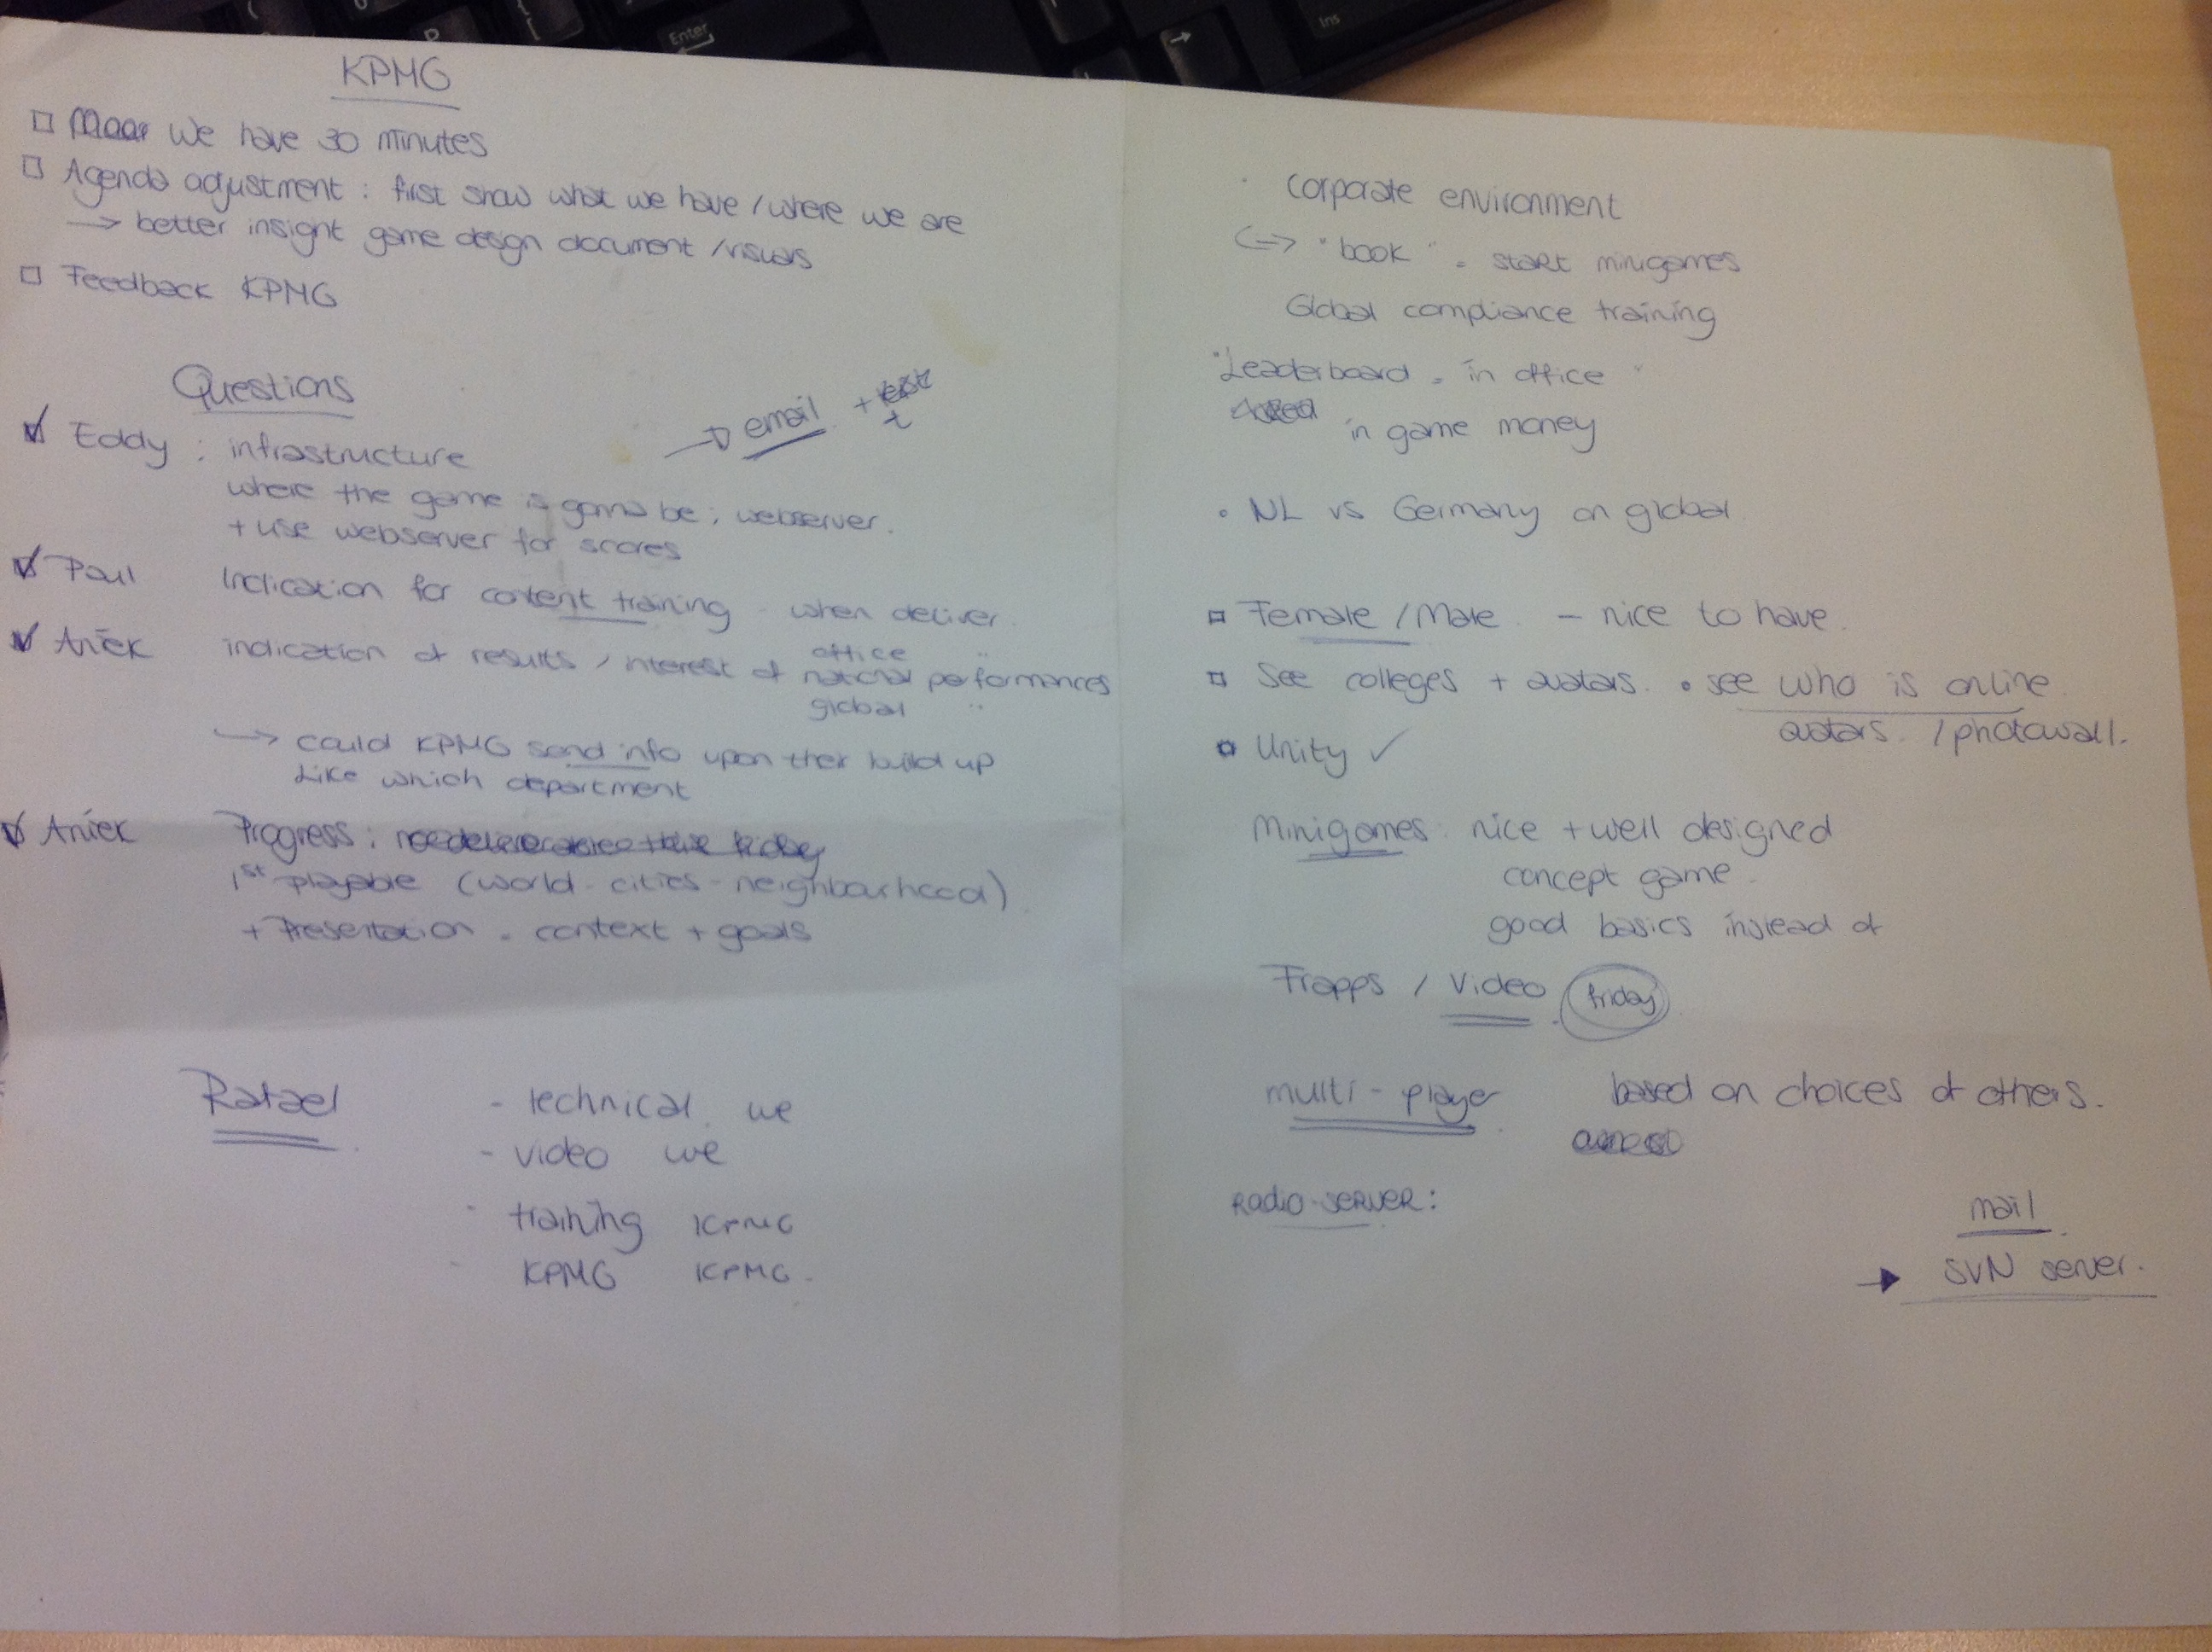 KPMG
We have 30 minutes
Agenda adjustment : first show what we have / where we are
→ better insight game design document / visuals
Feedback KPMG
Questions
→ email + test
Eddy : infrastructure
where the game is gonna be ; webserver.
+ use webserver for scores
Paul Indication for content training - when deliver.
office
Aniek indication of results / interest of national performances
global "
→ could KPMG send info upon their build up
Like which department
Aniek Progress :
1st playable (world - cities - neighbourhood)
+ Presentation - context + goals
Rafael - technical we
- video we
- training KPMG
- KPMG KPMG.
corporate environment
<-> "book" - start minigames
Global compliance training
"Leaderboard - in office"
in game money
• NL vs Germany on global
Female / Male - nice to have.
See colleges + avatars. • see who is online
avatars. / photowall.
Unity ✓
Minigames : nice + well designed
concept game.
good basics instead of
Frapps / Video friday
multi-player based on choices of others.
RADIO-SERVER :
mail
→ SVN server.